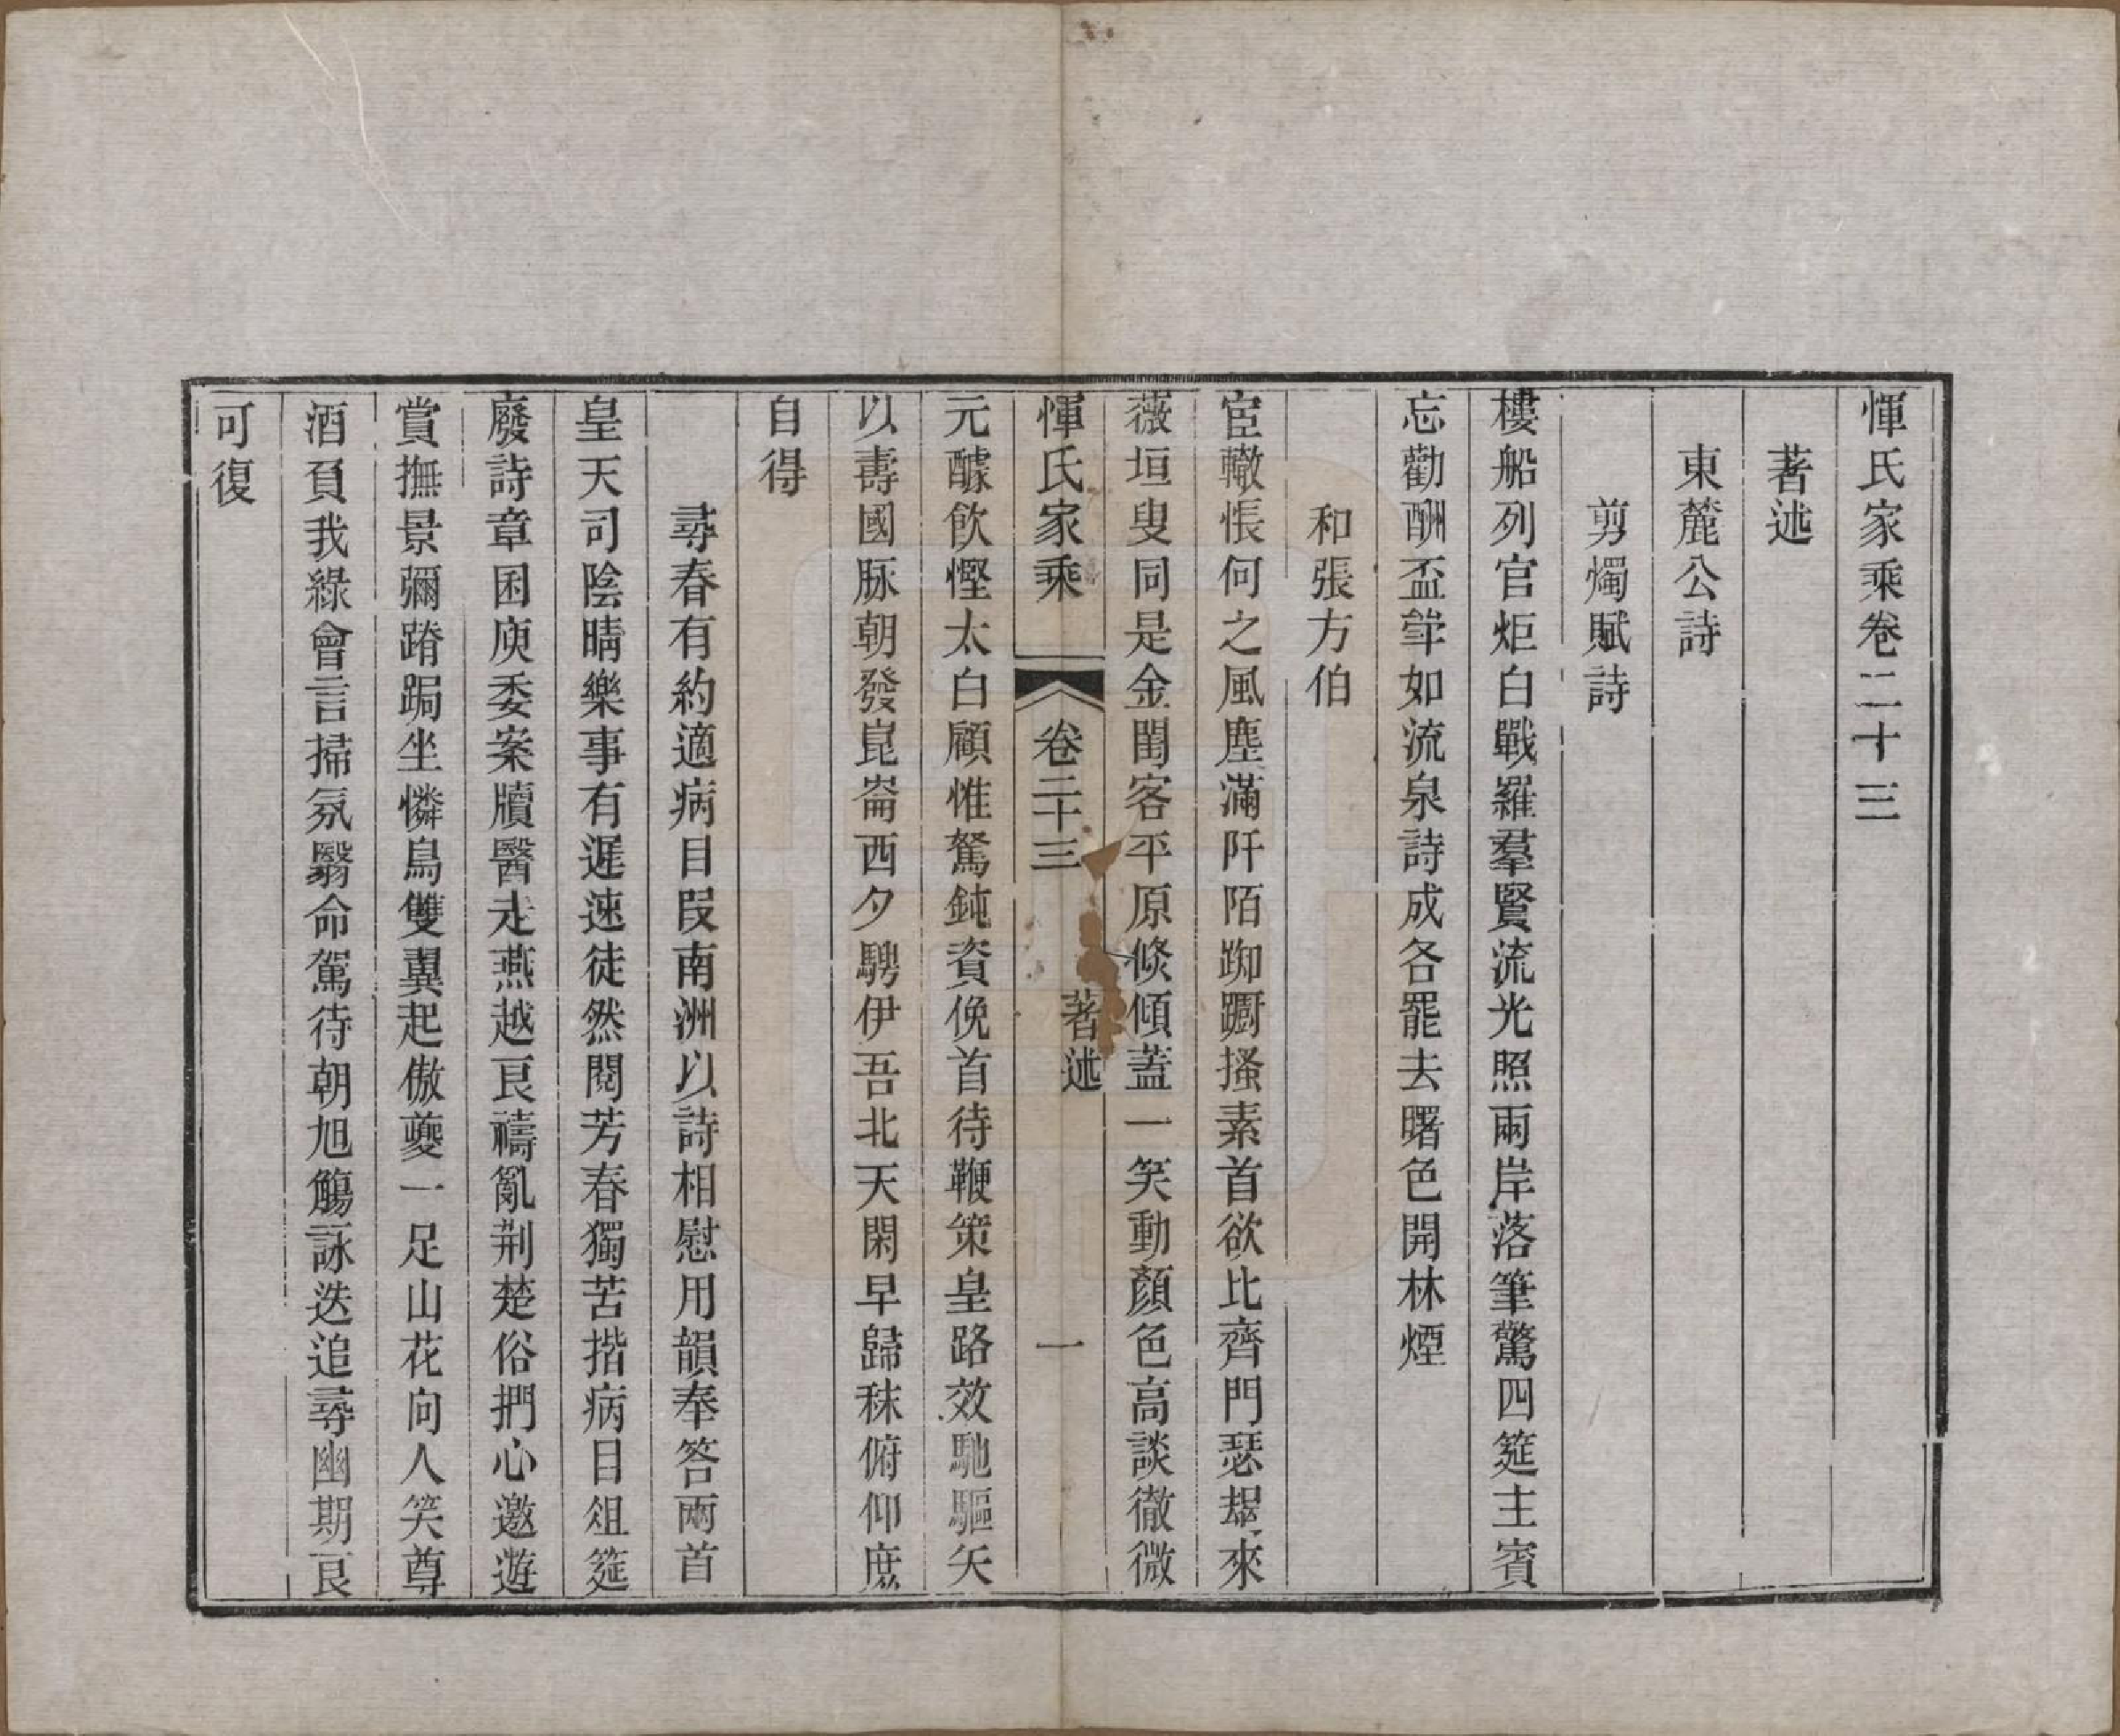 惲氏家乘卷二十三
著述
東麓公詩
剪燭賦詩
樓船列官炬白戰羅羣賢流光照兩岸落筆驚四筵主賓
忘勸酬盃斝如流泉詩成各罷去曙色開林煙
和張方伯
宦轍悵何之風塵滿阡陌踟躕搔素首欲比齊門瑟朅來
薇垣叟同是金閨客平原倐傾蓋一笑動顏色高談徹微
惲氏家乘 卷二十三 著述 一
元醵飲慳太白顧惟駑鈍資俛首待鞭策皇路效馳驅矢
以壽國脈朝發崑崙西夕騁伊吾北天閑早歸秣俯仰庶
自得
尋春有約適病目叚南洲以詩相慰用韻奉答兩首
皇天司陰晴樂事有遲速徒然閱芳春獨苦揩病目俎筵
廢詩章困庾委案牘醫走燕越良禱亂荆楚俗捫心邀遊
賞撫景彌蹐跼坐憐鳥雙翼起傲夔一足山花向人笑尊
酒負我綠會言掃氛翳命駕待朝旭觴詠迭追尋幽期良
可復